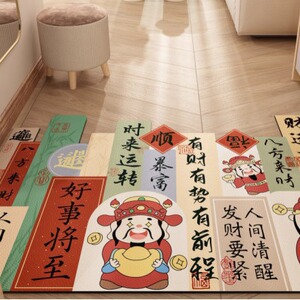 八方来财
好事将至
时来运转
顺
暴富
有财有势有前程
八方来财
人间清醒
发财要紧